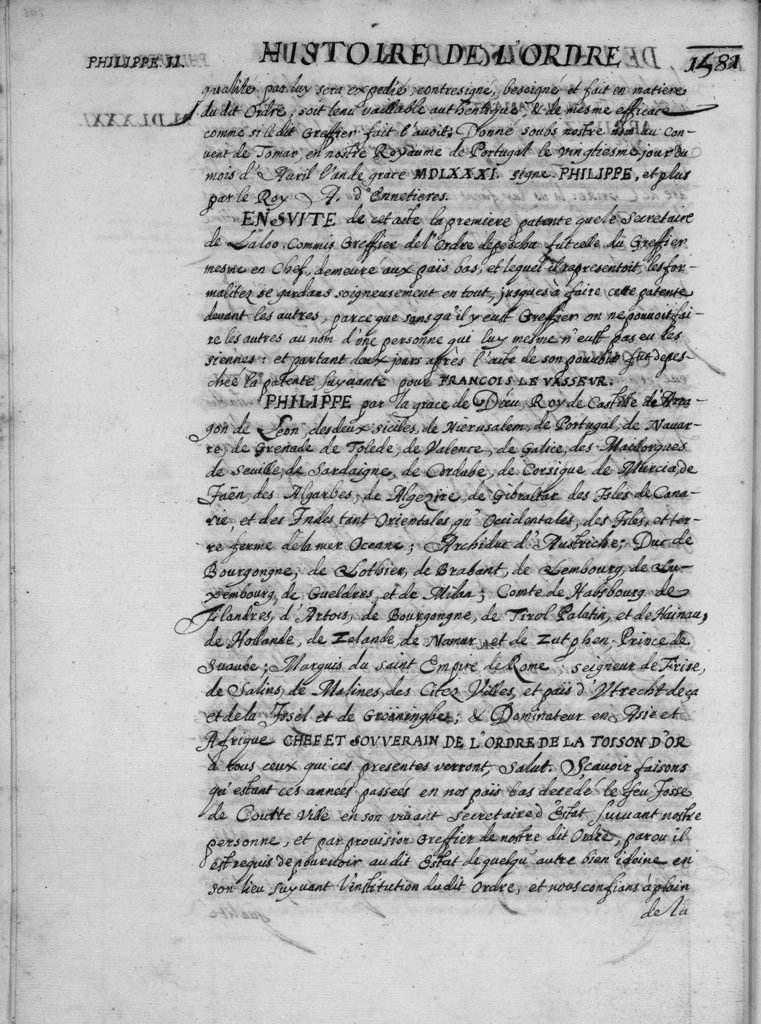 PHILIPPE II. HISTOIRE DE L'ORDRE 1581
qualité par luy sera expedié, contresigné, besoigné et fait en matiere
du dit Ordre, soit tenu vaillable authentique, & de mesme efficace
comme si ledit Greffier fait l'avoit; Donné soubs nostre nom au Con-
vent de Tomar, en nostre Royaume de Portugal le vingtiesme jour du
mois d'Avril l'an de grace MDLXXXI. signé PHILIPPE, et plus
par le Roy A. d'Ennetieres.
EN SVITE de cet acte la premiere patente que le Secretaire
de Laloo, Commis Greffier de l'Ordre depescha fut celle du Greffier
mesme en Chef, demeuré aux païs bas, et lequel il representoit, les for-
malitez se gardans soigneusement en tout, jusques à faire cette patente
devant les autres, parce que sans qu'il y eust Greffier on ne pouvoit fai-
re les autres au nom d'une personne qui luy mesme n'eust pas eu les
siennes: et partant deux jours aprés l'acte de son pouvoir fut depes-
cheé la patente suyvante pour FRANCOIS LE VASSEVR.
PHILIPPE par la grace de Dieu, Roy de Castille de Arra-
gon de Leon, des deux siciles, de Hierusalem, de Portugal, de Navar-
re, de Grenade de Tolede, de Valence, de Galice, des Maillorques
de Seville, de Sardaigne, de Cordube, de Corsique, de Murcia, de
Jaën, des Algarbes, de Algezire, de Gibraltar des Isles de Cana-
rie, et des Indes tant Orientales, qu'Occidentales, des Isles, et ter-
re ferme de la mer Oceane; Archiduc d'Austriche; Duc de
Bourgongne, de Lothier, de Brabant, de Lembourg, de Lu-
xembourg, de Gueldres, et de Milan; Comte de Habsbourg de
Flandres, d'Artois, de Bourgongne, de Tirol Palatin, et de Hainau,
de Hollande, de Zelande, de Namur, et de Zutphen. Prince de
Suaube; Marquis du saint Empire de Rome; seigneur de Frise,
de Salins, de Malines, des Citez Villes, et païs d'Vtrecht deça
et de la Issel et de Groëninghe; & Dominateur en Asie et
Afrique CHEF ET SOVVERAIN DE L'ORDRE DE LA TOISON D'OR
à tous ceux qui ces presentes verront, Salut. Scavoir faisons
qu'estant ces années passées en nos païs bas decedé le feu Josse
de Coutte Ville en son vivant Secretaire d'Estat suivant nostre
personne, et par provision Greffier de nostre dit Ordre, par ou il
est requis de pourvoir au dit Estat de quelqu'autre bien idoine en
son lieu suyvant l'institution du dit Ordre, et nous confians à plain
de la